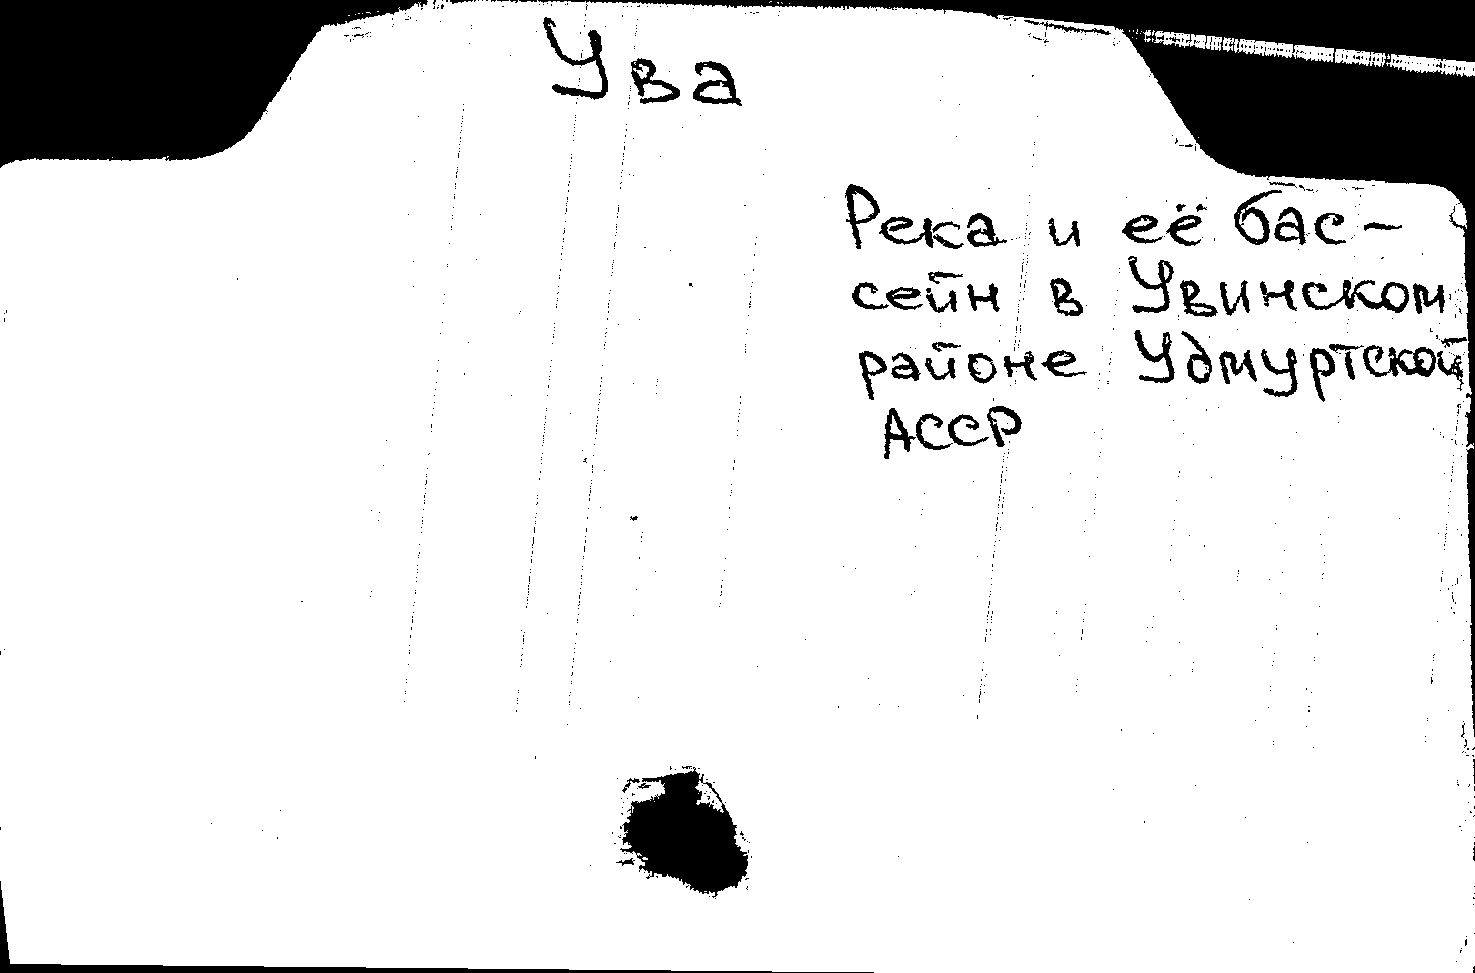 Ува
Река и её бас-
сейн в Увинском
районе Удмуртской
АССР